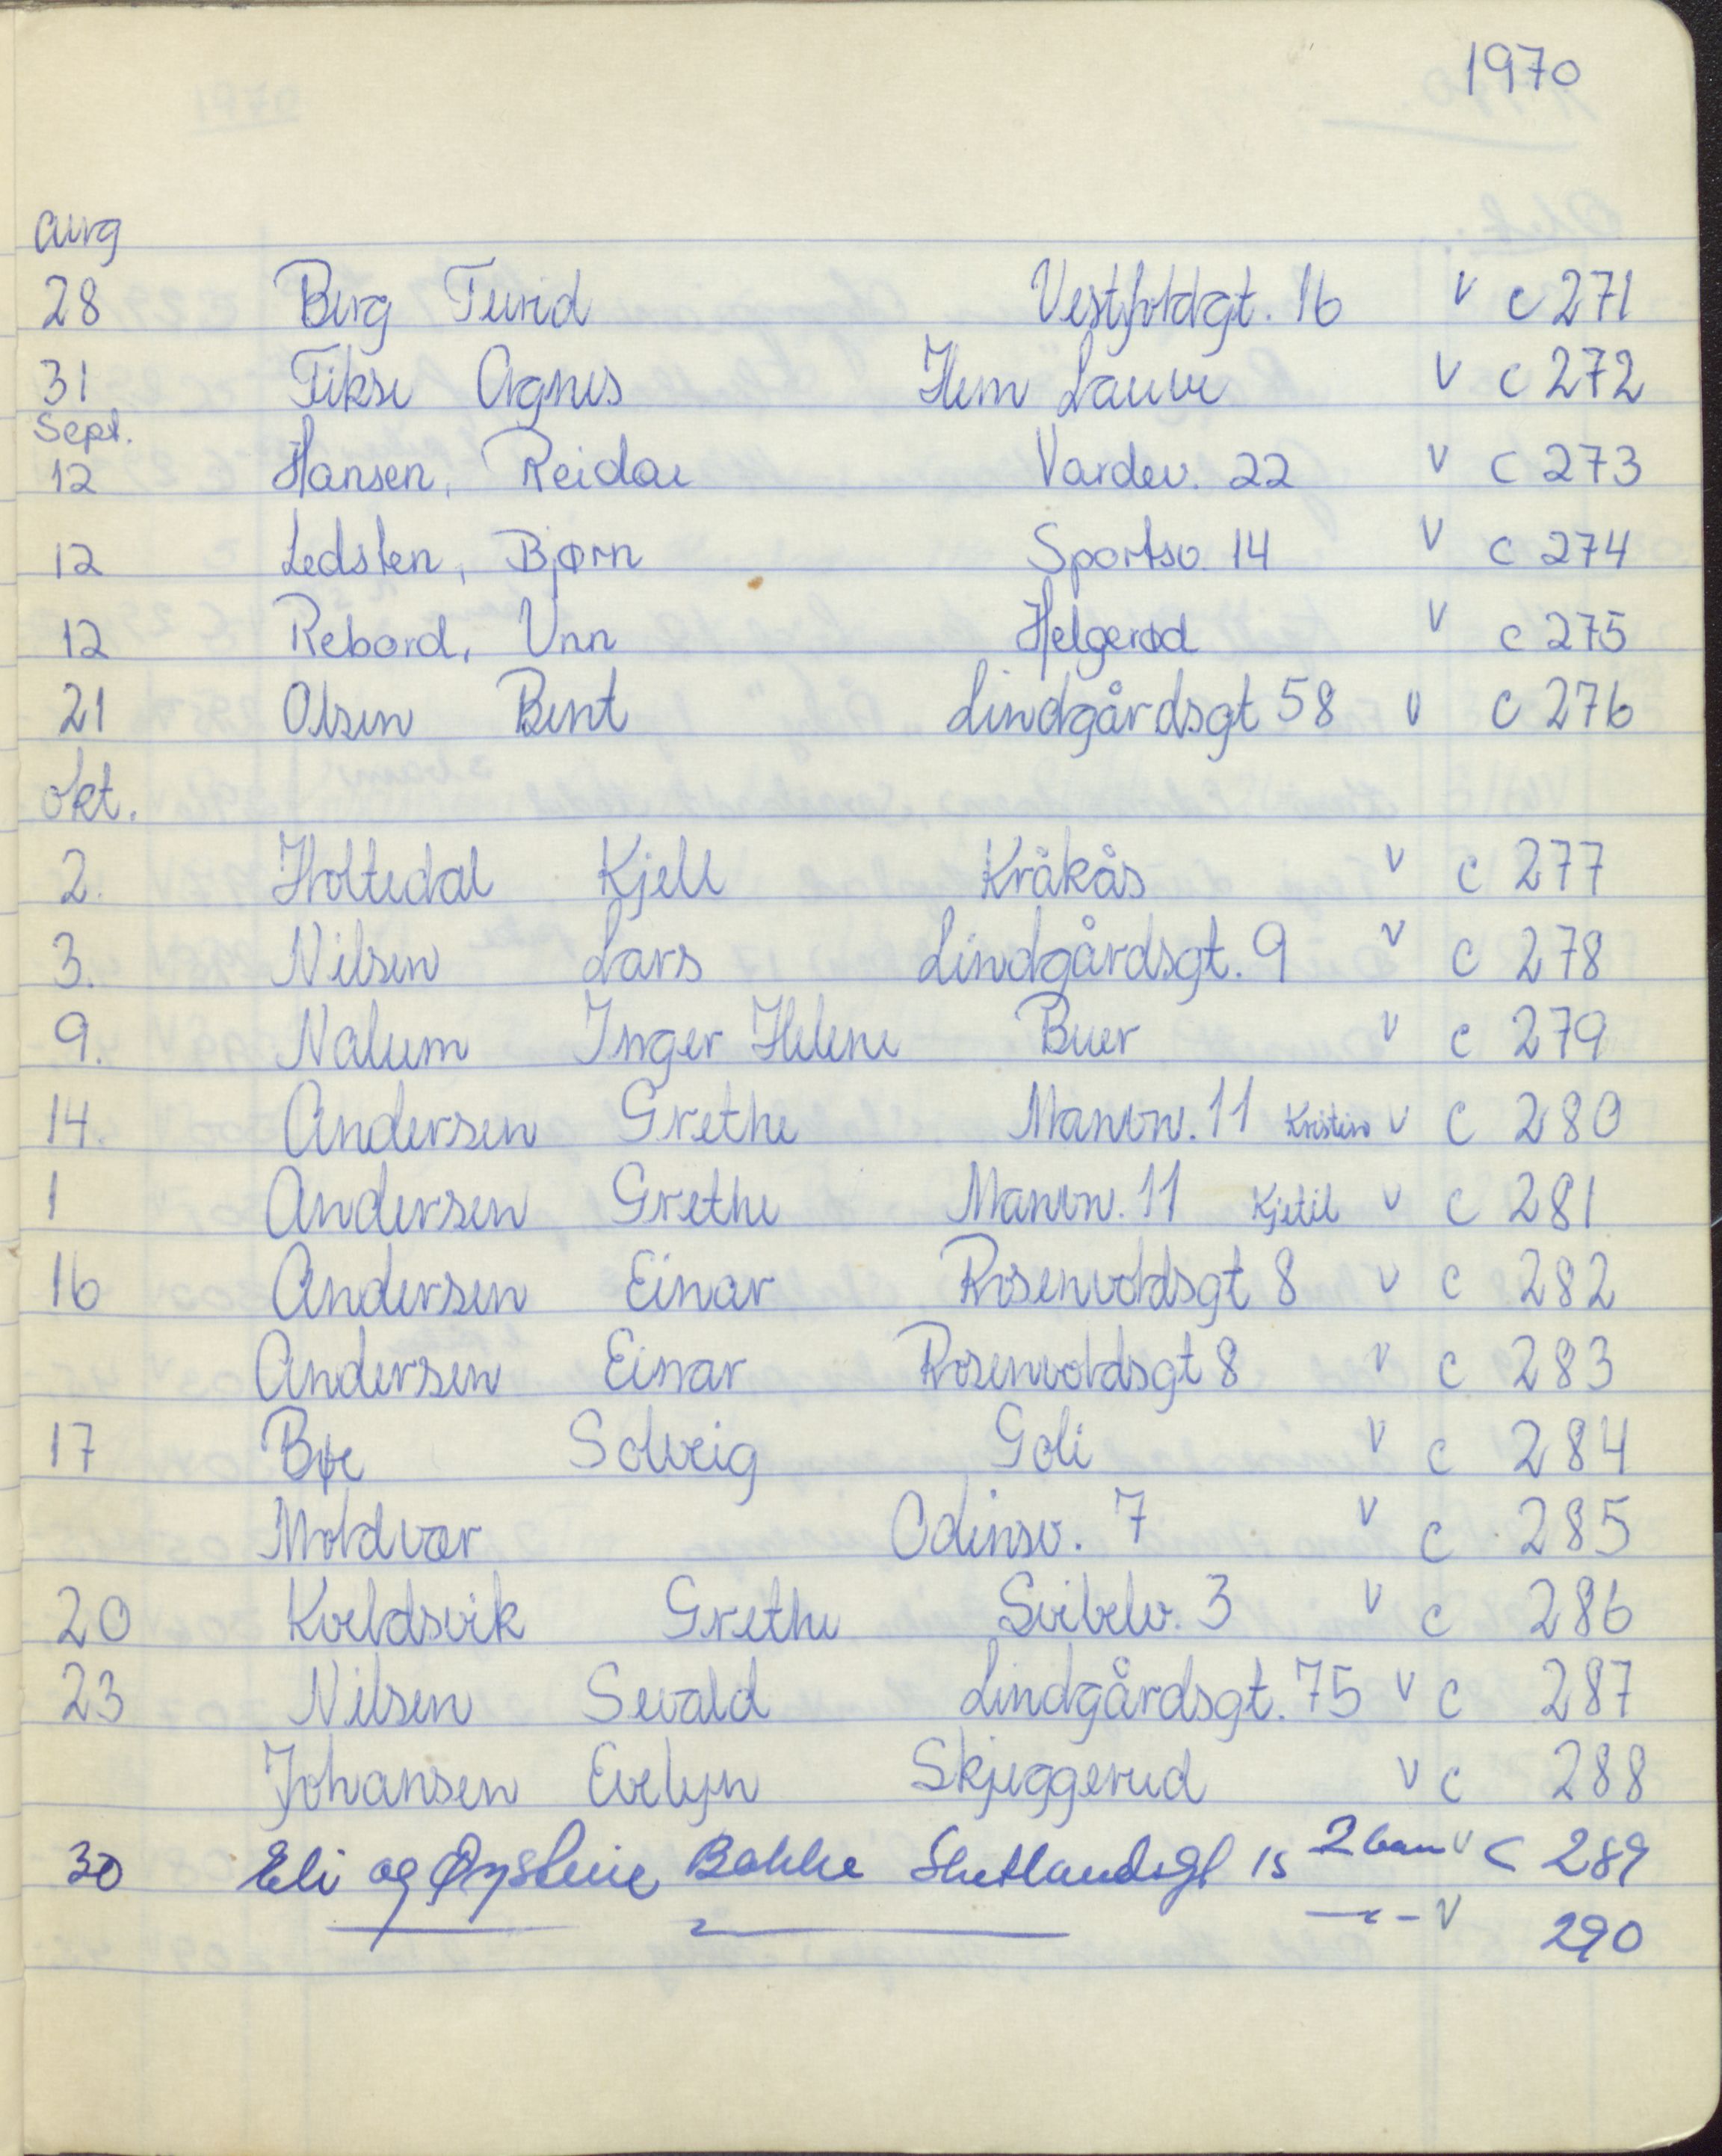 1970
aug
28 Berg Turid Vestfoldgt. 16 v c 271
31 Fikse Agnes Hem Lauve v c 272
Sept.
12 Hansen, Reidar Vardev. 22 v c 273
12 Ledsten, Bjørn Sportsv. 14 v c 274
12 Rebord, Unn Helgerød v c 275
21 Olsen Bent Lindgårdsgt 58 v c 276
okt.
2. Holtedal Kjell Kråkås v c 277
3. Nilsen Lars Lindgårdsgt. 9 v c 278
9. Nalum Inger Helene Buer v c 279
14. Andersen Grethe 11 Kristin v c 280
1 Andersen Grethe 11 Kjetil v c 281
16 Andersen Einar Rosenvoldsgt 8 v c 282
Andersen Einar Rosenvoldsgt 8 v c 283
17 Bøe Solveig Goli v c 284
Moldvær Odinsv. 7 v c 285
20 Kveldsvik Grethe Svibelv. 3 v c 286
23 Nilsen Sevald Lindgårdsgt. 75 v c 287
Johansen Evelyn Skjeggerud v c 288
30 Eli og Øystein Bakke 15 2 barn v c 289
v 290